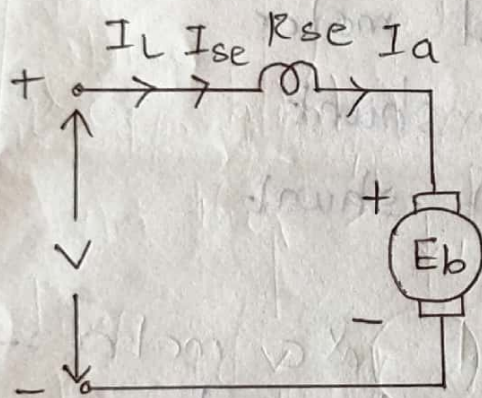 IL Ise Rse Ia
+
+
Eb
V
-
-